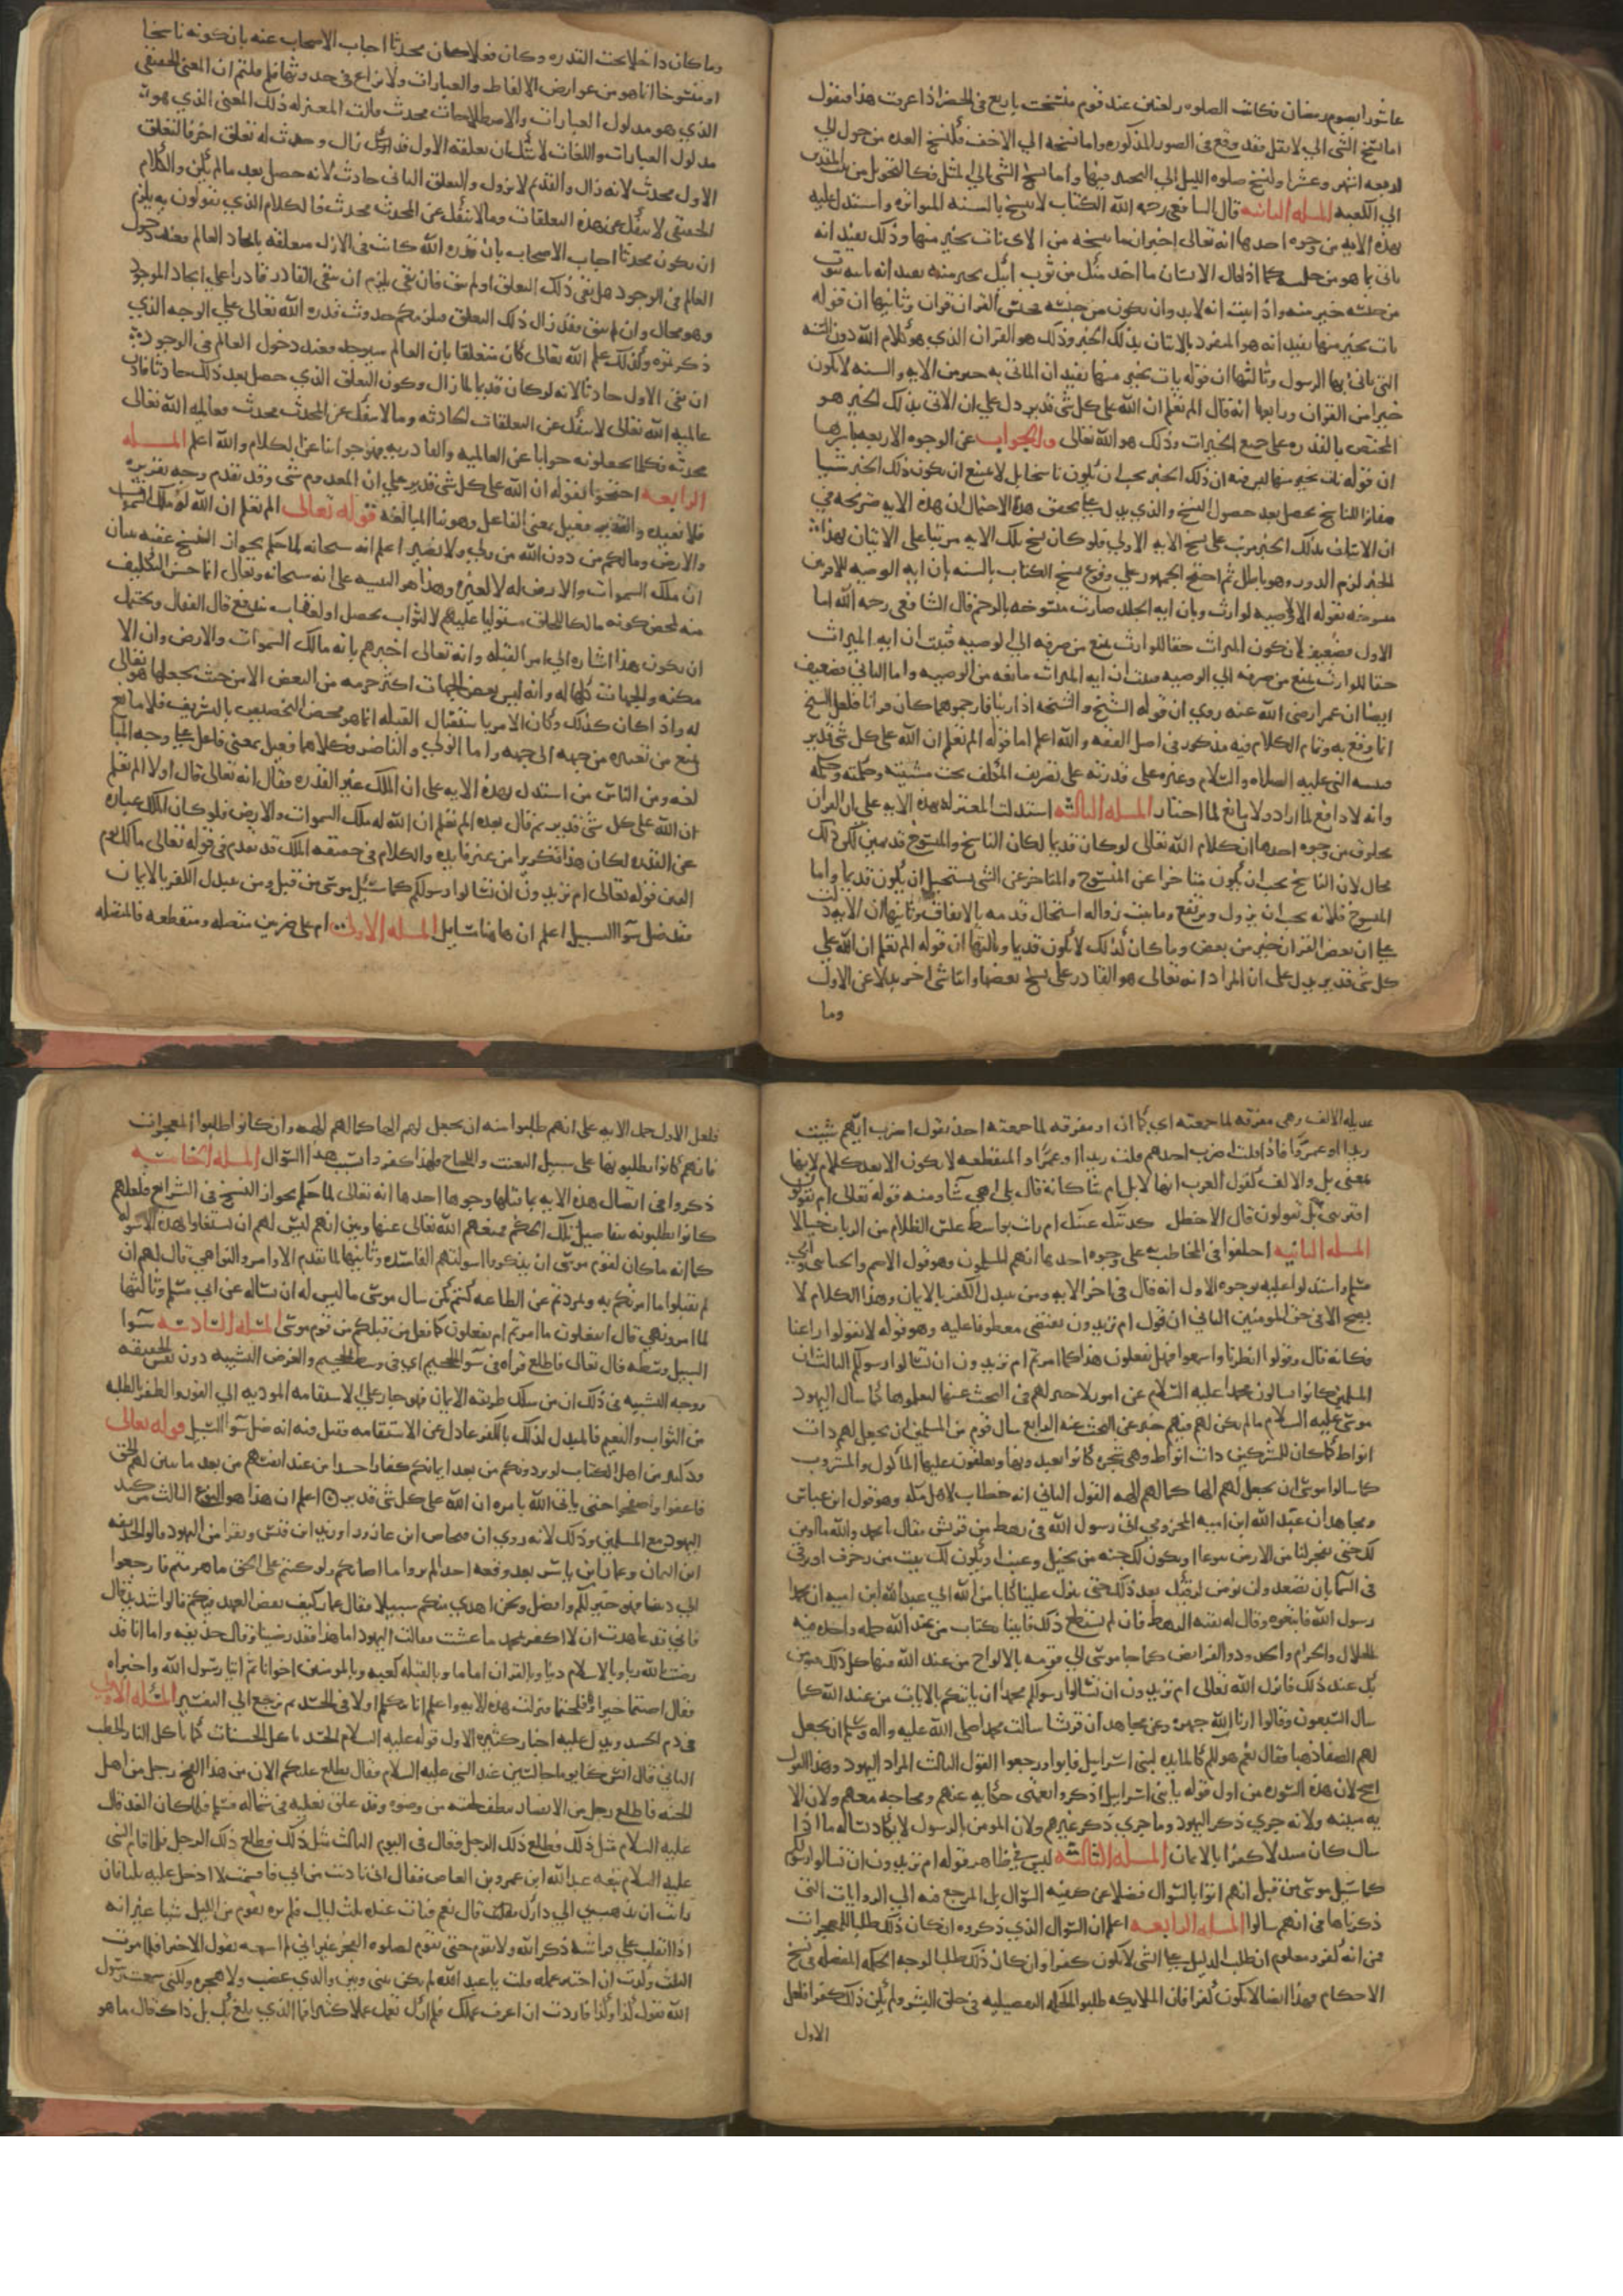 عاشورا بصوم رمضان وكانت الصلوه ركعتين عند قوم فنسخت باربع في الحضر اذا عرفت هذا فنقول
اما نسخ الشي الي الاثقل فقد وقع في الصور المذكوره واما نسخه الي الاخف فكنسخ العده من حول الي
اربعه اشهر وعشرا وكنسخ صلوه الليل الي التخيير فيها واما نسخ الشي الي المثل فكالتحويل من بيت المقدس
الي الكعبه المسله الثانيه قال الشافعي رحمه الله الكتاب لا ينسخ بالسنه المتواتره واستدل عليه
بهذه الايه من وجوه احدها انه تعالى اخبر ان ما ينسخه من الايات يات بخير منها وذلك يفيد انه
ياتي بما هو من جنسه كما اذا قال الانسان ما اخذ منك من ثوب اتيك بخير منه يفيد انه ياتيه بثوب
من جنسه خير منه واذا ثبت انه لا بد وان يكون من جنسه فجنس القران قران وثانيها ان قوله
نات بخير منها يفيد انه هو المنفرد بالاتيان بذلك الخير وذلك هو القران الذي هو كلام الله دون السنه
التي ياتي بها الرسول وثالثها ان قوله نات بخير منها يفيد ان الماتي به خير من الايه والسنه لا تكون
خيرا من القران ورابعها انه قال الم تعلم ان الله على كل شي قدير دل علي ان الاتي بذلك الخير هو
المختص بالقدره على جميع الخيرات وذلك هو الله تعالى والجواب عن الوجوه الاربعه باسرها
ان قوله نات بخير منها ليس فيه ان ذلك الخير يجب ان يكون ناسخا بل لا يمتنع ان يكون ذلك الخير شيا
مغايرا للناسخ يحصل بعد حصول النسخ والذي يدل على تحقق هذا الاحتمال ان هذه الايه صريحه في
ان الاتيان بذلك الخير مرتب على نسخ الايه الاولي فلو كان نسخ تلك الايه مرتبا على الاتيان بهذا
الخير لزم الدور وهو باطل ثم احتج الجمهور علي وقوع نسخ الكتاب بالسنه بان ايه الوصيه للاقربين
منسوخه بقوله الا لا وصيه لوارث وبان ايه الجلد صارت منسوخه بالرجم قال الشافعي رحمه الله اما
الاول فضعيف لان كون الميراث حقا للوارث يمنع من صرفه الي الوصيه فثبت ان ايه الميراث
حقا للوارث يمنع من صرفه الي الوصيه فثبت ان ايه الميراث مانعه من الوصيه واما الثاني فضعيف
ايضا ان عمر رضي الله عنه روي ان قوله الشيخ والشيخه اذا زنيا فارجموهما كان قرانا فلعل النسخ
انما وقع به وتمام الكلام فيه مذكور في اصل الفقه والله اعلم اما قوله الم تعلم ان الله على كل شي قدير
فتنبيه النبي عليه الصلاه والسلام وغيره على قدرته على تصريف المكلف تحت مشيته وحكمته وحكمه
وانه لا دافع لما اراد ولا مانع لما اختار المسله الثالثه استدلت المعتزله بهذه الايه على ان القران
مخلوق من وجوه احدها ان كلام الله تعالى لو كان قديما لكان الناسخ والمنسوخ قديمين لكن ذلك
محال لان الناسخ يجب ان يكون متاخرا عن المنسوخ والمتاخر عن الشي يستحيل ان يكون قديما واما
المنسوخ فلانه يجب ان يزول ويرتفع وما يثبت زواله استحال قدمه بالاتفاق وثانيها ان الايه دلت
على ان بعض القران خير من بعض وما كان كذلك لا يكون قديما وثالثها ان قوله الم تعلم ان الله علي
كل شي قدير يدل على ان المراد انه تعالى هو القادر على نسخ بعضها واتيان شي اخر بدلا عن الاول
وما
وما كان داخلا تحت القدره وكان فعلا كان محدثا اجاب الاصحاب عنه بان كونه ناسخا
او منسوخا انما هو من عوارض الالفاظ والعبارات ولا نزاع في حدوثها فلم قلتم ان المعنى الحقيقي
الذي هو مدلول العبارات والاصطلاحات محدث قالت المعتزله ذلك المعنى الذي هو
مدلول العبارات واللغات لا شك ان تعلقه الاول قد زال وحدث له تعلق اخر فالتعلق
الاول محدث لانه زال والقديم لا يزول والتعلق الثاني حادث لانه حصل بعد ما لم يكن والكلام
الحقيقي لا ينفك عن هذه التعلقات وما لا ينفك عن المحدث محدث فالكلام الذي تقولون به يلزم
ان يكون محدثا اجاب الاصحاب بان قدره الله كانت في الازل متعلقه بايجاد العالم فعند دخول
العالم في الوجود هل بقي ذلك التعلق او لم يبق فان بقي يلزم ان يبقى القادر قادرا علي ايجاد الموجود
وهو محال وان لم يبق فقد زال ذلك التعلق فلزمكم حدوث قدره الله تعالى على الوجه الذي
ذكرتموه وكذلك علم الله تعالى كان متعلقا بان العالم سيوجد فعند دخول العالم في الوجود
ان بقي الاول حادثا لانه لو كان قديما لما زال وكون التعلق الذي حصل بعد ذلك حادثا فاذن
عالميه الله تعالى لا تنفك عن التعلقات الحادثه وما لا ينفك عن المحدث محدث فعالميه الله تعالى
محدثه فكلما تجعلونه جوابا عن العالميه والقادريه فهو جوابنا عن الكلام والله اعلم المسله
الرابعه احتجوا بقوله ان الله على كل شي قدير على ان المعدوم شي وقد تقدم وجه تقريره
فلا نعيده والقدير فعيل بمعنى الفاعل وهو بنا المبالغه قوله تعالى الم تعلم ان الله له ملك السموات
والارض وما لكم من دون الله من ولي ولا نصير اعلم انه سبحانه لما حكم بجواز النسخ عقبه ببيان
ان ملك السموات والارض له لا لغيره وهذا هو التنبيه على انه سبحانه وتعالى انما حسن التكليف
منه لمحض كونه مالكا للخلق مستوليا عليهم لا لثواب يحصل او لعقاب يندفع قال القفال ويحتمل
ان يكون هذا اشاره الي امر القبله وانه تعالى اخبرهم بانه مالك السموات والارض وان الا
مكنه والجهات كلها له وانه ليس بعض الجهات اكثر حرمه من البعض الا من حيث يجعلها هو تعالى
له واذا كان كذلك وكان الامر باستقبال القبله انما هو محض التخصيص بالتشريف فلا مانع
يمنع من تغييره من جهه الى جهه واما الولي والناصر فكلاهما فعيل بمعنى فاعل علي وجه المبا
لغه ومن الناس من استدل بهذه الايه على ان الملك غير القدره فقال انه تعالى قال اولا الم تعلم
ان الله على كل شي قدير ثم قال بعده الم تعلم ان الله له ملك السموات والارض فلو كان الملك عباره
عن القدره لكان هذا تكريرا من غير فايده والكلام في حقيقه الملك قد تقدم في قوله تعالى مالك يوم
الدين قوله تعالى ام تريدون ان تسالوا رسولكم كما سئل موسى من قبل ومن يتبدل الكفر بالايمان
فقد ضل سوا السبيل اعلم ان هاهنا مسايل المسله الاولى ام على ضربين متصله ومنقطعه فالمتصله
عديله الالف وهي مفرقه لما جمعته اي كما ان او مفرقه لما جمعته احد تقول اضرب ايهم شيت
زيدا او عمروا فاذا قلت اضرب احدهم قلت زيدا او عمروا والمنقطعه لا تكون الا بعد كلام لانها
بمعنى بل والالف كقول العرب انها لابل ام شا كانه قال بل اهي شا ومنه قوله تعالى ام يقولون
افتريه بل يقولون قال الاخطل كذبتك عينك ام رايت بواسط غلس الظلام من الرباب خيالا
المسله الثانيه اختلفوا في المخاطب به على وجوه احدها انهم المسلمون وهو قول الاصم والجبائي وابي
مسلم واستدلوا عليه بوجوه الاول انه قال في اخر الايه ومن يتبدل الكفر بالايمان وهذا الكلام لا
يصح الا في حق المومنين الثاني ان قوله ام تريدون يقتضي معطوفا عليه وهو قوله لا تقولوا راعنا
فكانه قال وقولوا انظرنا واسمعوا فهل تفعلون هذا كما امرتم ام تريدون ان تسالوا رسولكم الثالث ان
المسلمين كانوا يسالون محمدا عليه السلام عن امور لا خير لهم في البحث عنها ليعلموها كما سال اليهود
موسى عليه السلام ما لم يكن لهم فيه خير عن البحث عنه الرابع سال قوم من المسلمين ان يجعل لهم ذات
انواط كما كان للمشركين ذات انواط وهي شجره كانوا يعبدونها ويعلقون عليها الماكول والمشروب
كما سالوا موسى ان يجعل لهم الها كما لهم الهه القول الثاني انه خطاب لاهل مكه وهو قول ابن عباس
ومجاهد ان عبد الله ابن اميه المخزومي اتى رسول الله في رهط من قريش فقال يا محمد والله ما اومن
لك حتى تفجر لنا من الارض ينبوعا او يكون لك جنه من نخيل وعنب او يكون لك بيت من زخرف او ترقى
في السما بان تصعد ولن نومن لرقيك بعد ذلك حتى تنزل علينا كتابا من الله الي عبد الله ابن اميه ان محمدا
رسول الله فاتبعوه وقال له بقيه الرهط فان لم تستطع ذلك فايتنا بكتاب من عند الله جمله واحده فيه
الحلال والحرام والحدود والفرايض كما جا موسى الي قومه بالالواح من عند الله فيها كل ذلك فنومن
بك عند ذلك فانزل الله تعالى ام تريدون ان تسالوا رسولكم محمدا ان ياتيكم بالايات من عند الله كما
سال السبعون وقالوا ارنا الله جهره وعن مجاهد ان قريشا سالت محمدا صلى الله عليه واله وسلم ان يجعل
لهم الصفا ذهبا فقال نعم هو لكم كالمايده لبني اسرايل فابوا ورجعوا القول الثالث المراد اليهود وهذا القول
اصح لان هذه السوره من اول قوله يا بني اسرايل اذكروا نعمتي حكايه عنهم ومحاجه معهم ولان الا
يه مدنيه ولانه جري ذكر اليهود وما جري ذكر غيرهم ولان المومن بالرسول لا يكاد يساله ما اذا
سال كان متبدلا كفرا بالايمان المسله الثالثه ليس في ظاهر قوله ام تريدون ان تسالوا رسولكم
كما سئل موسى من قبل انهم اتوا بالسوال فضلا عن كيفيه السوال بل المرجع فيه الي الروايات التي
ذكرناها في انهم سالوا المسله الرابعه اعلم ان السوال الذي ذكروه ان كان ذلك طلبا للمعجزات
فمن انه كفر ومعلوم ان طلب الدليل على الشي لا يكون كفرا وان كان ذلك طلبا لوجه الحكمه المفصله في نسخ
الاحكام فهذا ايضا لا يكون كفرا فان الملايكه طلبوا الحكمه التفصيليه في خلق البشر ولم يكن ذلك كفرا فلعل
الاول
فلعل الاول حمل الايه على انهم طلبوا منه ان يجعل لهم الها كما لهم الهه وان كانوا طلبوا المعجزات
فانهم كانوا يطلبونها على سبيل التعنت واللجاج فلهذا كفروا بسبب هذا السوال المسله الخامسه
ذكروا في اتصال هذه الايه بما قبلها وجوها احدها انه تعالى لما حكم بجواز النسخ في الشرايع فلعلهم
كانوا يطلبونه بتفاصيل تلك الحكم فمنعهم الله تعالى عنها وبين انهم ليس لهم ان يشتغلوا بهذه الاسوله
كما انه ما كان لقوم موسى ان يذكروا اسولتهم الفاسده وثانيها لما تقدم الاوامر والنواهي قال لهم ان
لم تقبلوا ما امرتكم به وتمردتم عن الطاعه كنتم كمن سال موسى ما ليس له ان يساله عن ابي مسلم وثالثها
لما امر ونهي قال اتفعلون ما امرتم ام تفعلون كما فعل من قبلكم من قوم موسى المسله السادسه سوا
السبيل وسطه قال تعالى فاطلع فراه في سوا الجحيم اي في وسط الجحيم والغرض التشبيه دون نفس الحقيقه
ووجه التشبيه في ذلك ان من سلك طريقه الايمان فهو جار على الاستقامه المؤديه الي الفوز والظفر بالطلبه
من الثواب والنعيم فالمبدل لذلك بالكفر عادل عن الاستقامه فقيل فيه انه ضل سوا السبيل قوله تعالى
ود كثير من اهل الكتاب لو يردونكم من بعد ايمانكم كفارا حسدا من عند انفسهم من بعد ما تبين لهم الحق
فاعفوا واصفحوا حتى ياتي الله بامره ان الله على كل شي قدير اعلم ان هذا هو النوع الثالث من كيد
اليهود مع المسلمين وذلك لانه روي ان فنحاص ابن عازورا وزيد ابن قيس ونفرا من اليهود قالوا لحذيفه
ابن اليمان وعمار ابن ياسر بعد وقعه احد الم تروا ما اصابكم ولو كنتم على الحق ما هزمتم فارجعوا
الي ديننا فهو خير لكم وافضل ونحن اهدي منكم سبيلا فقال عمار كيف نقض العهد فيكم قالوا شديد قال
فاني قد عاهدت ان لا اكفر بمحمد ما عشت فقالت اليهود اما هذا فقد صبا وقال حذيفه واما انا فقد
رضيت بالله ربا وبالاسلام دينا وبالقران اماما وبالقبله كعبه وبالمومنين اخوانا ثم اتيا رسول الله واخبراه
فقال اصبتما خيرا وافلحتما فنزلت هذه الايه واعلم انا نتكلم اولا في الحسد ثم نرجع الي التفسير المسله الاولى
في ذم الحسد ويدل عليه اخبار كثيره الاول قوله عليه السلام الحسد ياكل الحسنات كما ياكل النار الحطب
الثاني قال انس كنا يوما جالسين عند النبي عليه السلام فقال يطلع عليكم الان من هذا الفج رجل من اهل
الجنه فاطلع رجل من الانصار ينطف لحيته من وضوه وقد علق نعليه في شماله فسلم فلما كان الغد قال
عليه السلام مثل ذلك فطلع ذلك الرجل فقال في اليوم الثالث مثل ذلك فطلع ذلك الرجل فلما قام النبي
عليه السلام تبعه عبد الله ابن عمرو بن العاص فقال اني تاذيت من ابي فاقسمت لا ادخل عليه ثلثا فان
رايت ان تذهب بي الي دارك فعلت قال نعم فبات عنده ثلث ليال فلم يره يقوم من الليل شيا غير انه
اذا انقلب على فراشه ذكر الله ولا يقوم حتى يقوم لصلوه الفجر غير اني لم اسمعه يقول الا خيرا فلما مرت
الثلث وكدت ان احتقر عمله قلت يا عبد الله لم يكن بيني وبين والدي غضب ولا هجره ولكني سمعت رسول
الله يقول كذا وكذا فاردت ان اعرف عملك فلم ارك تعمل عملا كثيرا فما الذي بلغ بك ذاك قال ما هو